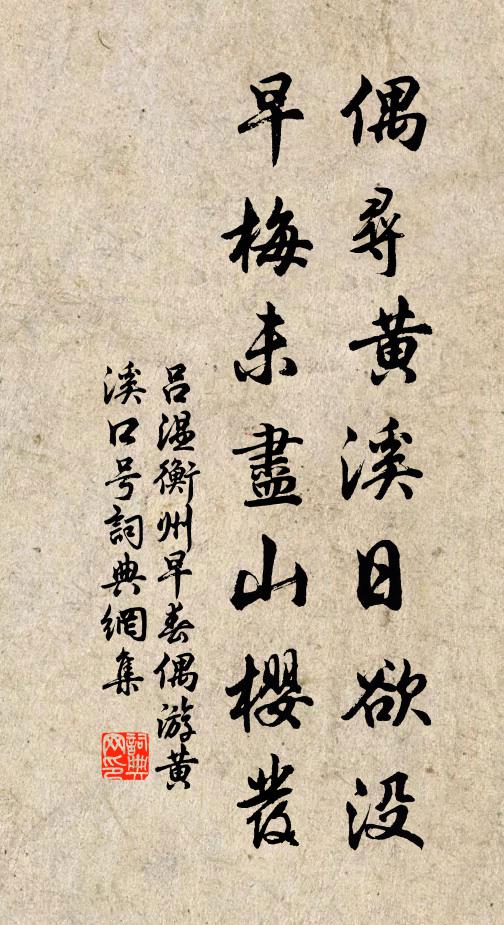 偶尋黄溪日欲没
早梅未盡山櫻發
吕温衡州早春偶游黄
溪口号詞典網集
詞典
网印